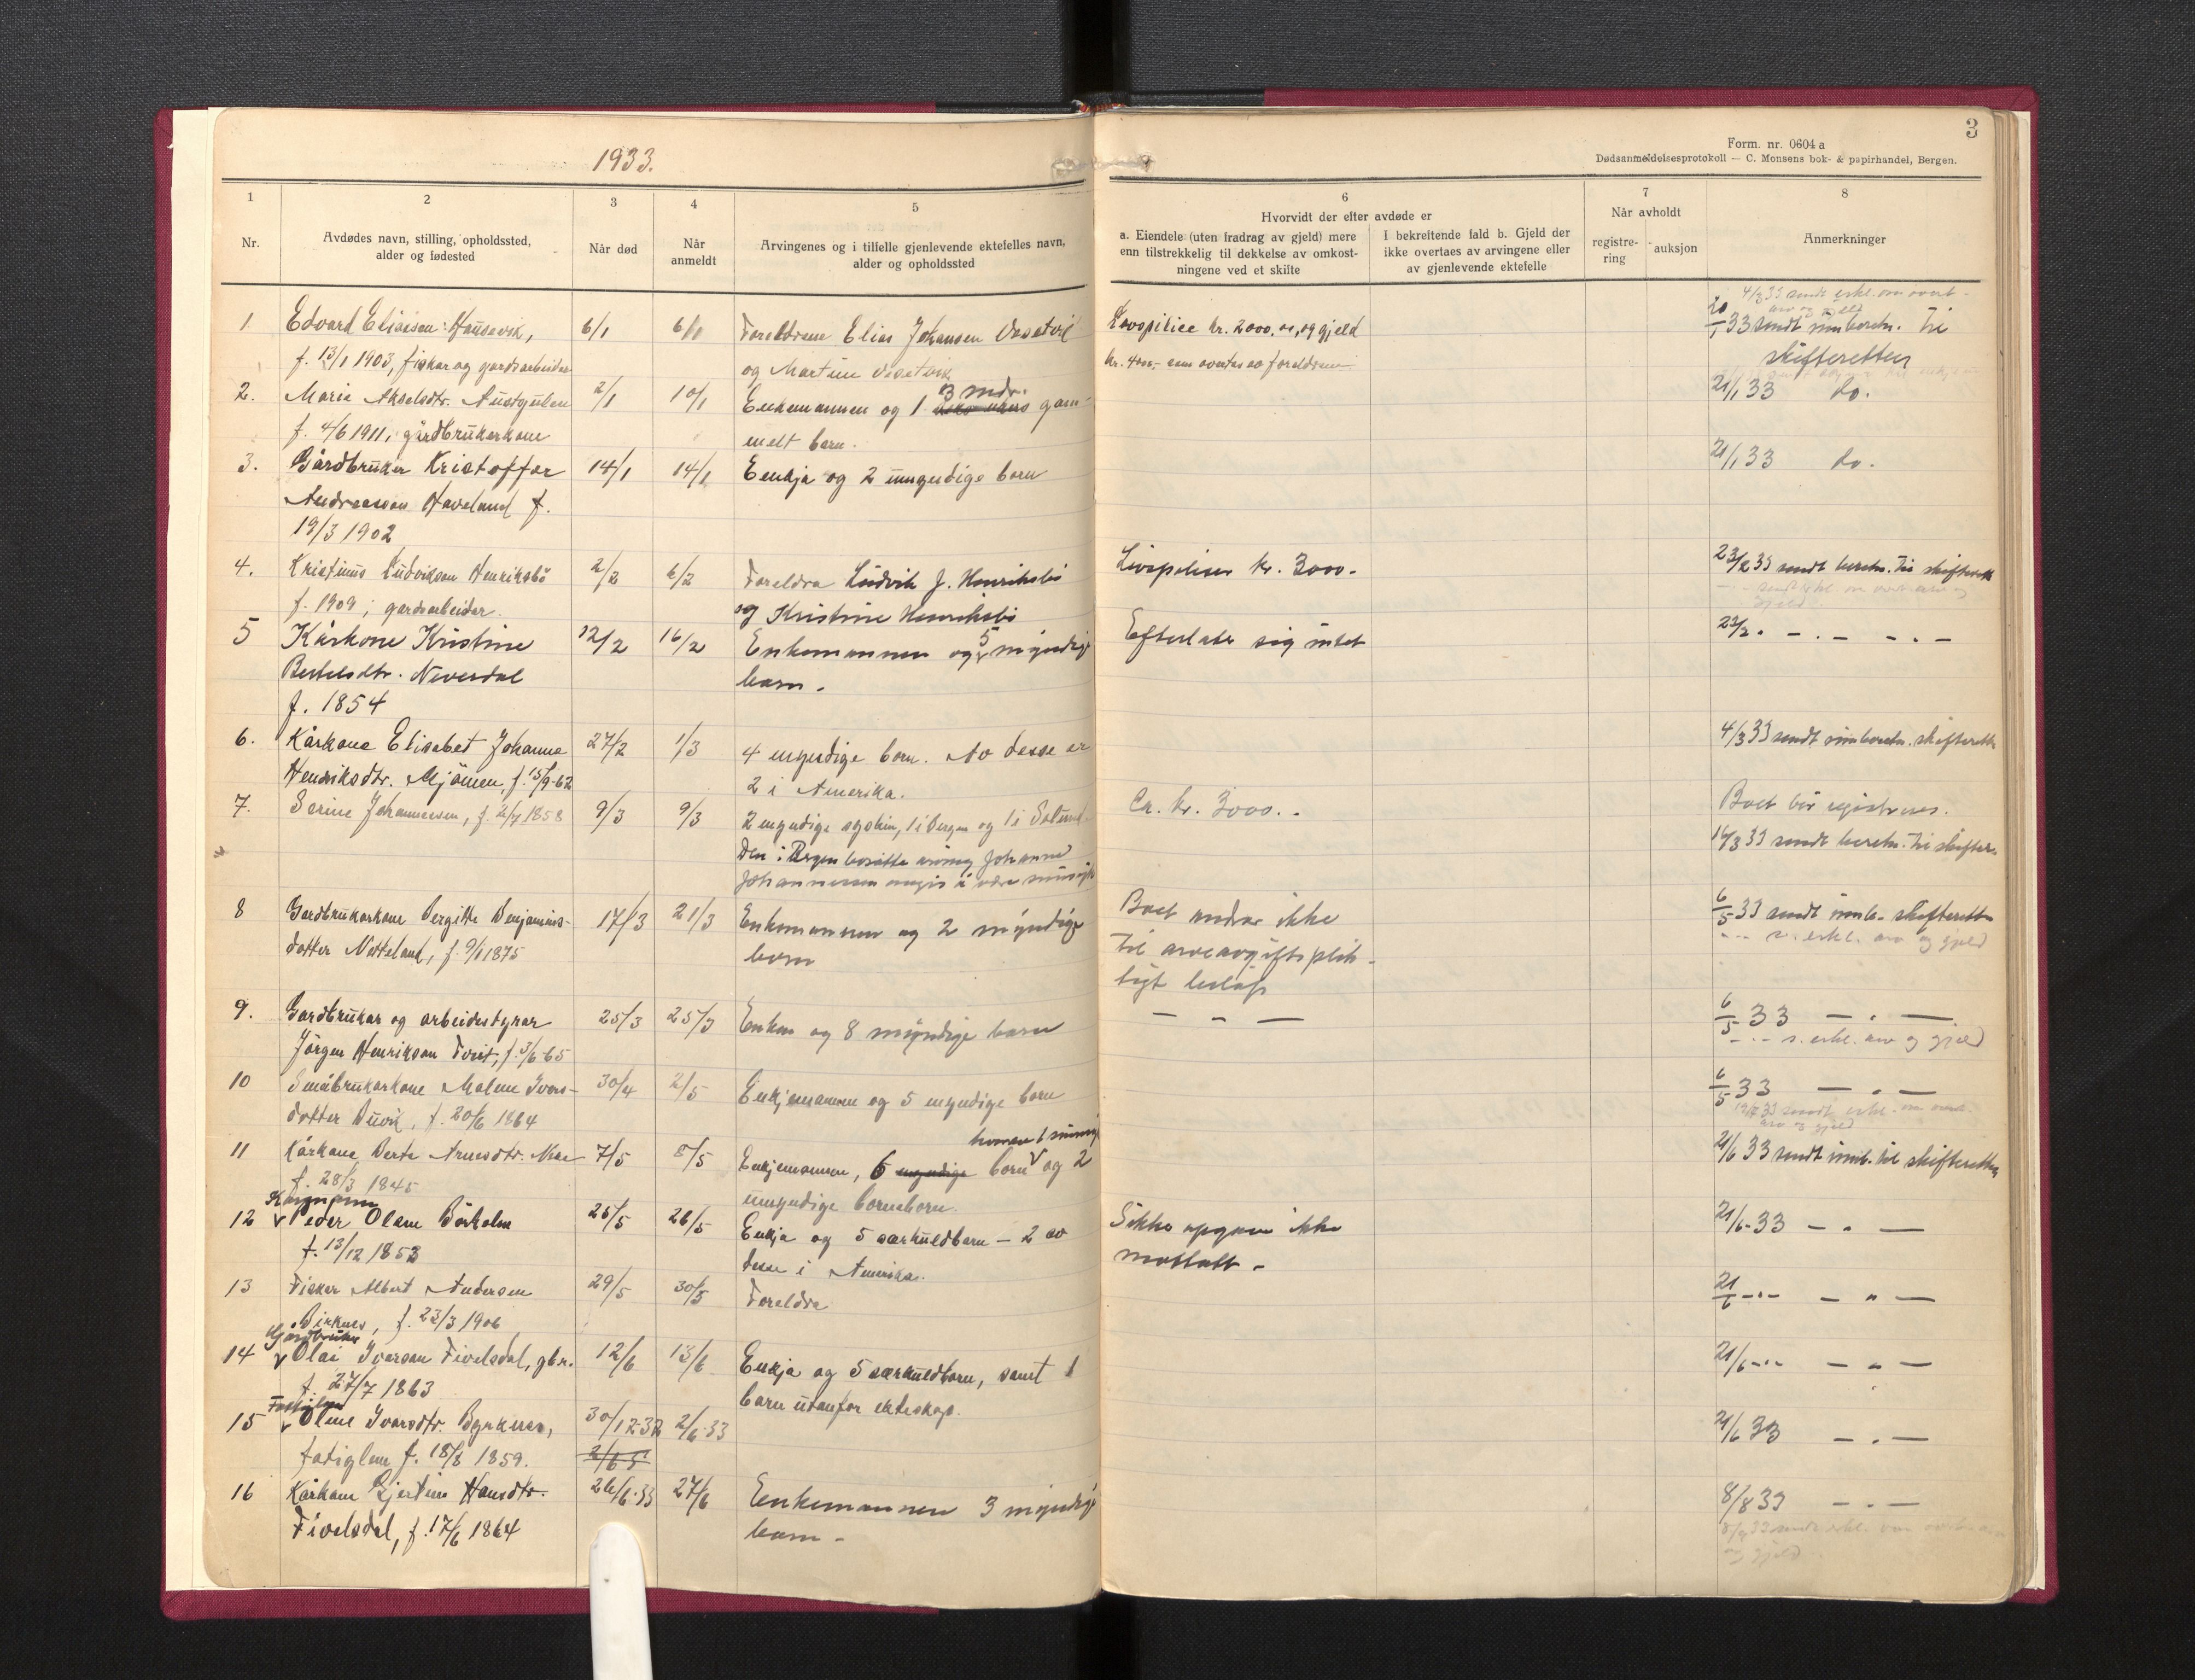 1933.
3
Form. nr. 0604 a
Dødsanmeldelsesprotokoll — C. Monsens bok- & papirhandel, Bergen.
1
Nr.
2
Avdødes navn, stilling, opholdssted,
alder og fødested
3
Når død
4
Når
anmeldt
5
Arvingenes og i tilfelle gjenlevende ektefelles navn,
alder og opholdssted
6
Hvorvidt der efter avdøde er
a. Eiendele (uten fradrag av gjeld) mere
enn tilstrekkelig til dekkelse av omkost-
ningene ved et skifte
I bekreftende fald b. Gjeld der
ikke overtaes av arvingene eller
av gjenlevende ektefelle
7
Når avholdt
registre-
ring
auksjon
8
Anmerkninger
1
Edvard Eliassen
f. 13/1 1903, fiskar og gardsarbeider
6/1
6/1
Foreldrene Elias Johansen
og Martine
kr. 2000.00, og gjeld
kr. 400,- som overtas av foreldrene
4/3 33 sendt erkl. om overt.
arv og gjeld
20/1 33 sendt innberetn. til
skifteretten
2.
Marie Akselsdtr. Austgulen
f. 4/6 1911, gårdbrukerkone
2/1
10/1
3 mdr.
Enkemannen og 1 gam-
melt barn.
21/1 33 do.
3.
Gårdbruker Kristoffer
Andreasson Haveland f.
19/3 1902
14/1
14/1
Enkja og 2 umyndige born
21/1 33 do.
4.
Kristinus Ludvikson Henriksbø
f. 1909; gardsarbeider.
2/2
6/2
Foreldra Ludvik J. Henriksbø
og Kristine Henriksbø
Livspoliser kr. 3000.-
23/2 33 sendt beretn. til skifterett
sendt erkl. om overt. arv og
gjeld
5
Kårkone Kristine
Bertelsdtr. Neverdal
f. 1854
12/2
16/2
5
Enkemannen og myndige
barn.
Efterlater sig intet
23/2 . – . – – . . –
6.
Kårkona Elisabet Johanna
Henriksdtr. Mjømen, f. 15/9-62
27/2
1/3
4 myndige born. Av desse er
2 i Amerika.
4/3 33 sendt innberetn. skifterett
7.
Serine Johannessen, f. 2/4 1858
9/3
9/3
2 myndige syskin, 1 i Bergen og 1 i Solund.
Den i Bergen bosatte Johannes
Johannessen
Ca. kr. 3000.-
Boet bør registreres.
16/3 33 sendt beretn. til skifter.
8
Gardbrukarkone Bergitte Benjamins-
dotter Notteland, f. 9/1 1875
17/3
21/3
Enkemannen og 2 myndige
born
Boet ikke
til arveavgiftsplik-
tigt beløp
6/5 33 sendt innb. skifterett
– . – s. erkl. arv og gjeld
9.
Gardbrukar og arbeidestyrar
Jörgen Henrikson Tveit, f. 3/6-65
25/3
25/3
Enken og 8 myndige barn
— - —
6/5 33 — . —
– . – s. erkl. arv og gjeld
10
Småbrukarkone Malene Ivers-
dotter f. 20/6 1864
30/4
2/5
Enkjemannen og 5 myndige born
6/5 33 — . —
33 sendt erkl. om overt.
arv og gjeld
11
Kårkone Berte Arnesdtr.
f. 28/3 1845
7/5
8/5
Enkjemannen, 6 myndige born og 2
umyndige borneborn.
21/6 33 sendt innb. til skifteretten
12
Kårmann
Peder Olsen Börholm
f. 13/12 1853
25/5
26/5
Enkja og 5 særkuldborn – 2 av
desse i Amerika.
Sikker opgave ikke
mottatt.
21/6-33 – " —
13
Fisker Albert Andersen
Birknes, f. 23/3 1906
29/5
30/5
Foreldre
21/6 – " – — " —
14
Gardbruker
Olai Iverson Tivelsdal, gbr.
f. 27/7 1863
12/6
13/6
Enkja og 5 særkuldborn, samt 1
barn utanfor ekteskap.
21/6 – " – — " —
15
Oline Iversdtr. Byrknes,
fatiglem f. 18/8 1859.
30/12-32
2/6 5
2/6-33
21/6 33 — . —
16
Kårkone Gjertine Hansdtr.
Tivelsdal, f. 17/6 1864
26/6-33
27/6
Enkemannen 3 myndige
barn.
8/8 33 — . —
33 sendt erkl. om overt. arv
og gjeld